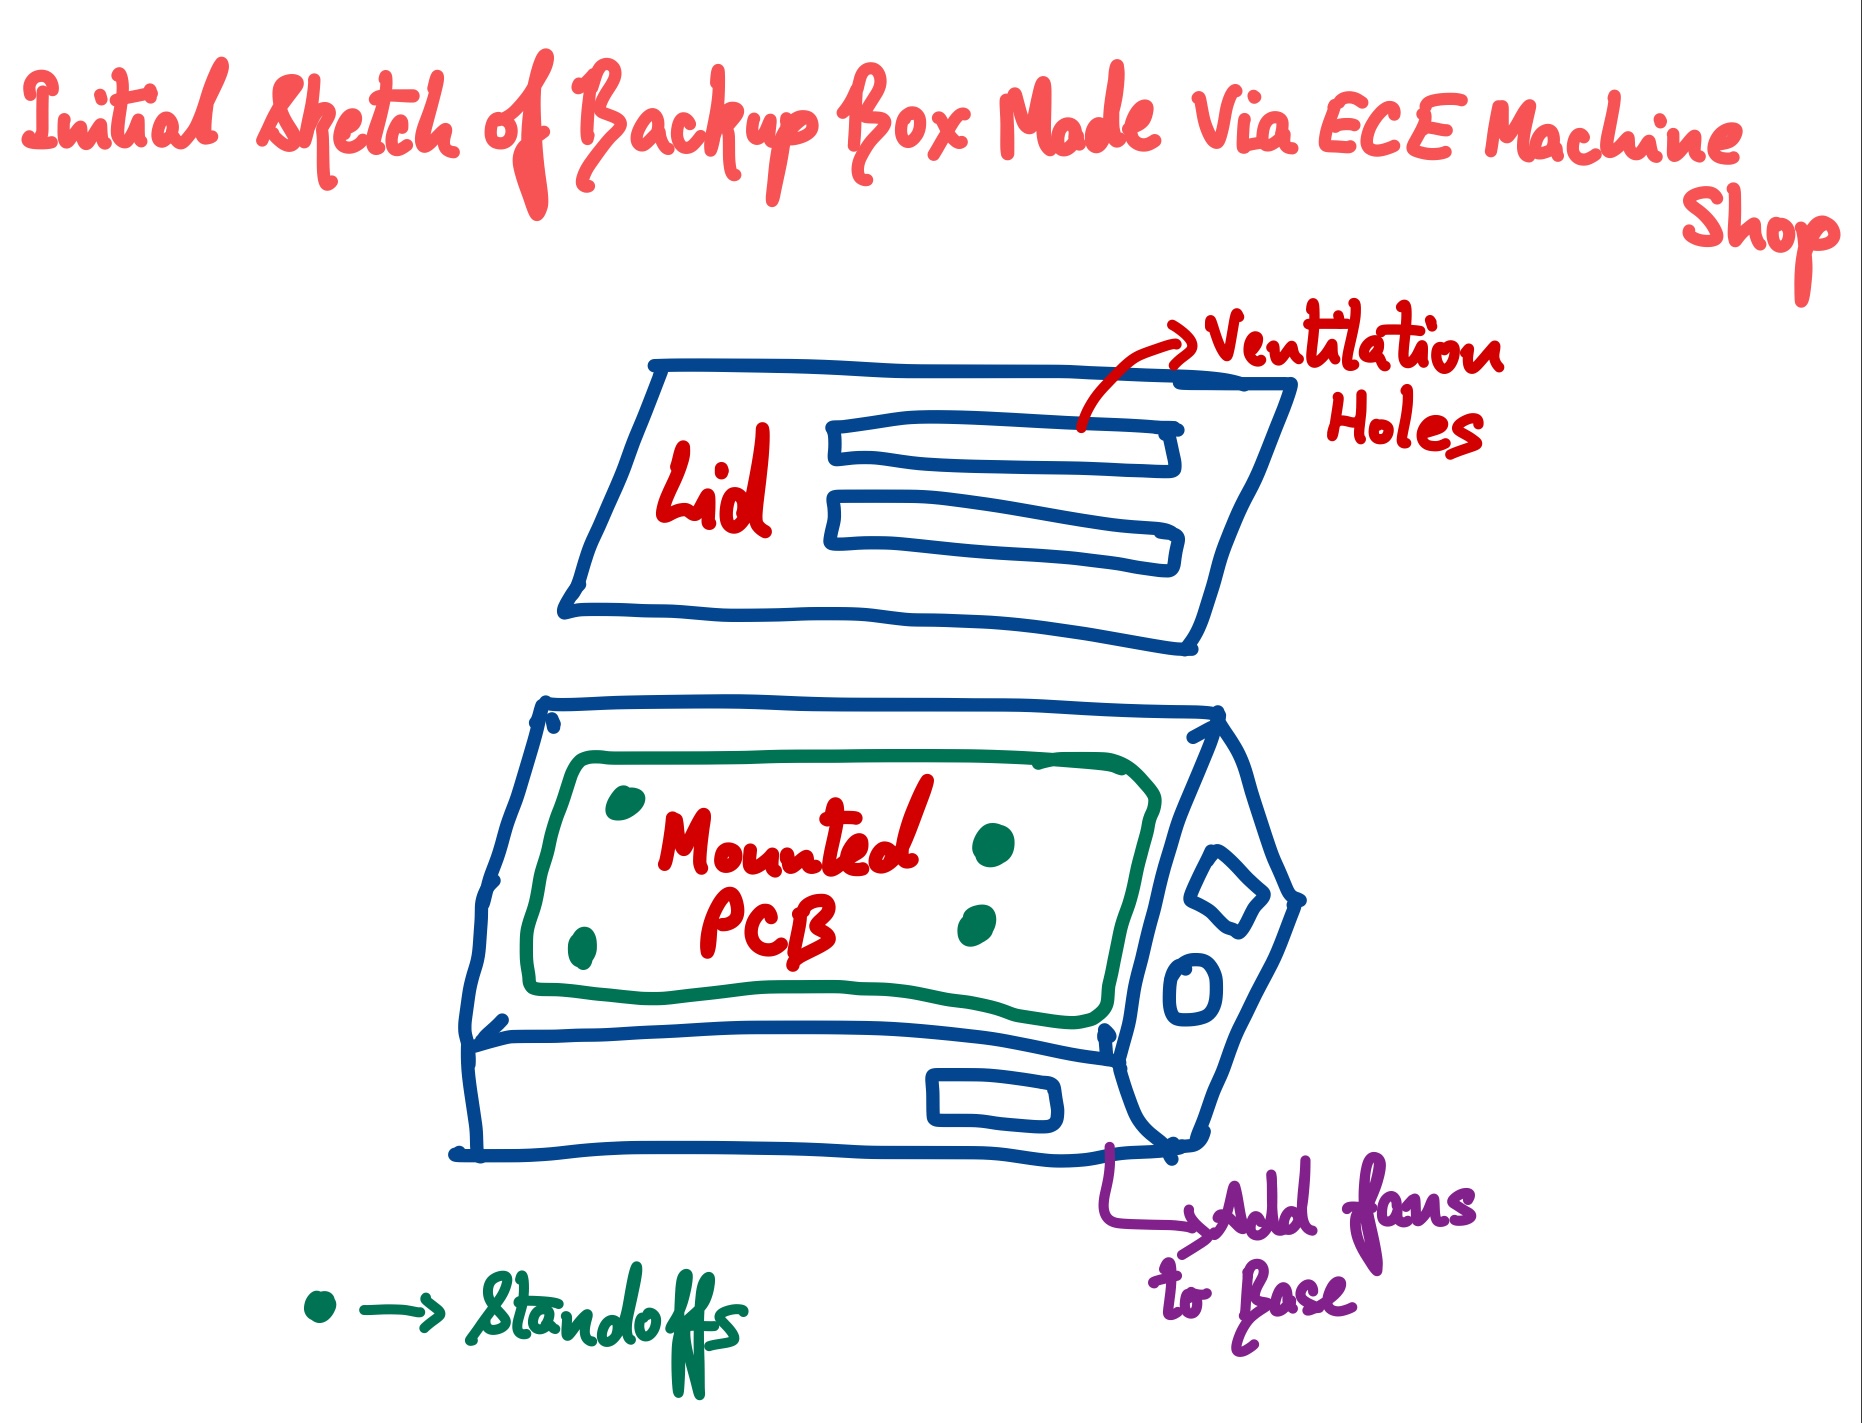 Initial Sketch of Backup Box Made Via ECE Machine
Shop
Ventilation
Holes
Lid
Mounted
PCB
Add fans
to Base
→ Standoffs